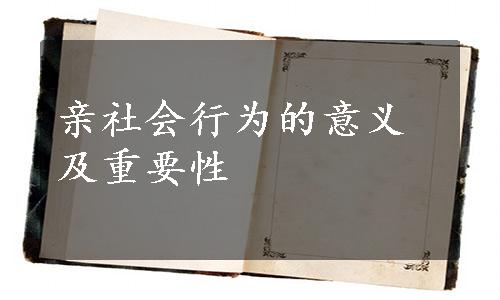 亲社会行为的意义
及重要性